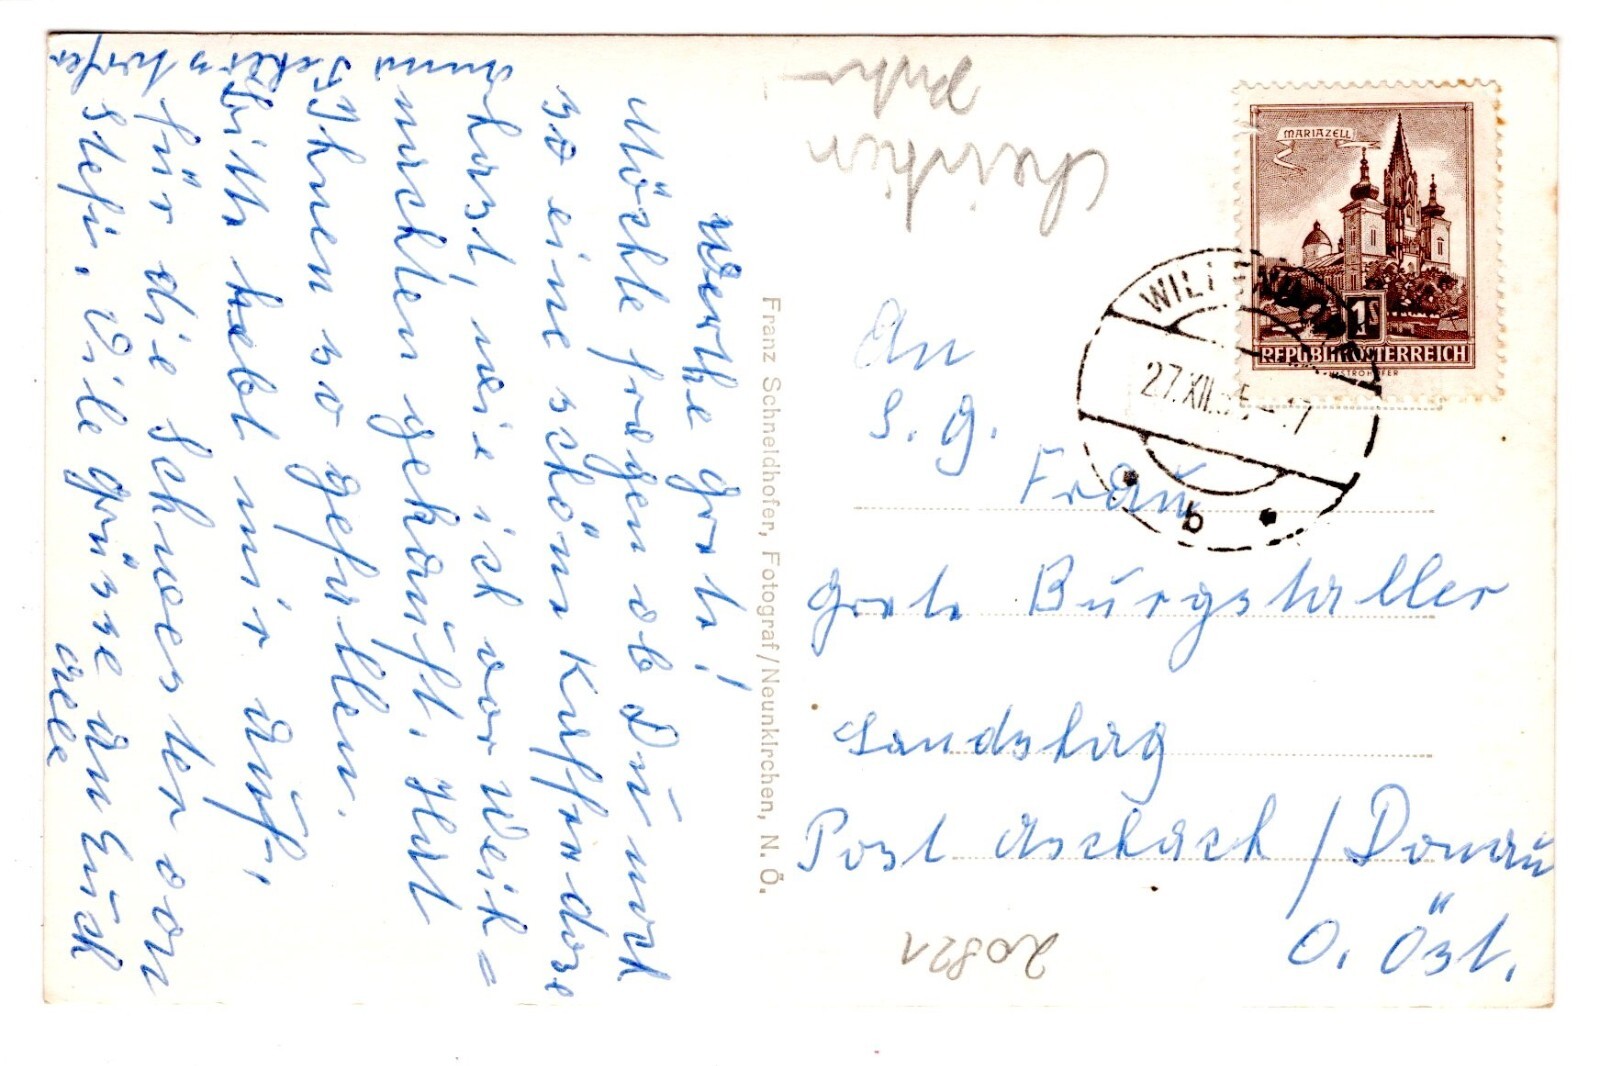 Werthe Grete!
Möchte fragen ob Du noch
so eine schöne Kaffeedose
hast, wie ich vor Weih=
nachten gekauft. Hat
Ihnen so gefallen.
Bitte hebt mir auf,
für die Schwester von
Stefi. Viele grüsse an Euch
alle
Anna
Franz Schneidhofer, Fotograf/Neunkirchen, N. Ö.
MARIAZELL
1S
REPUBLIK ÖSTERREICH
WILLENDORF
27.XII.
b
An
S. g.
Frau
Grete Burgstaller
Landshag
Post Aschach / Donau
O. Öst.
20821